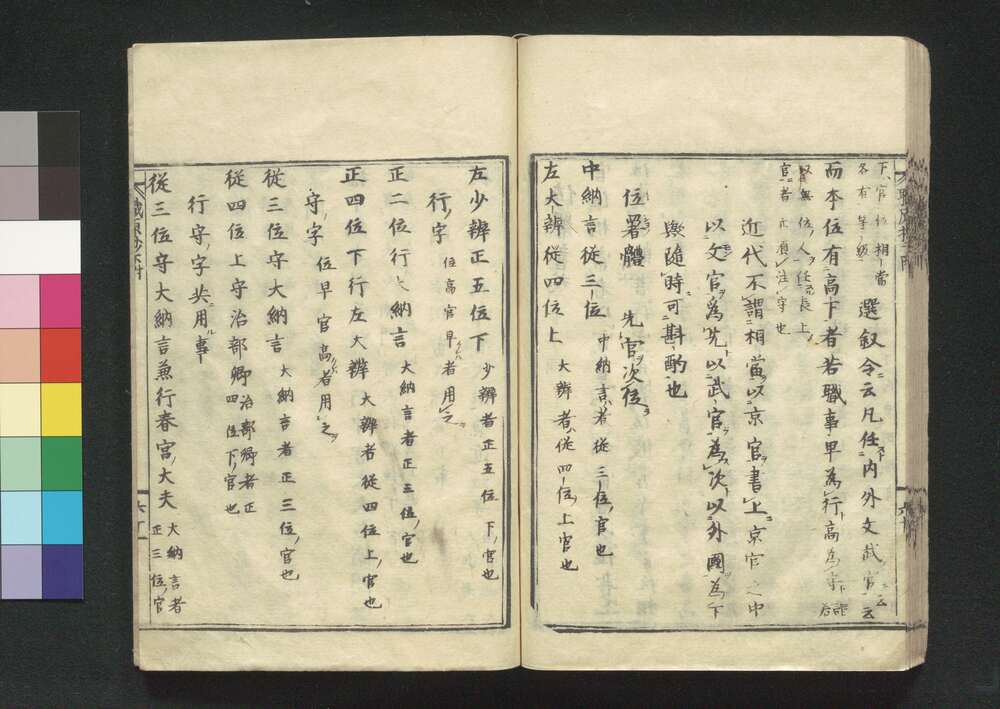 下官位相當
各有等級
選叙令云凡任内外文武官云云
而本位有高下者若職事卑為行高為守
無位人任長上
官者注守也
近代不謂相當以京官書上京官之中
以文官為先以武官為次以外國為下
與隨時可斟酌也
位署體 先官次位
中納言從三位 中納言者從三位官也
左大辨從四位上 大辨者從四位上官也
左少辨正五位下 少辨者正五位下官也
行字 位高官卑者用之
正二位行大納言 大納言者正三位官也
正四位下行左大辨 大辨者從四位上官也
守字 位卑官高者用之
從三位守大納言 大納言者正三位官也
從四位上守治部卿 治部卿者正四位下官也
行守字共用事
從三位守大納言兼行春宮大夫 大納言者正三位官